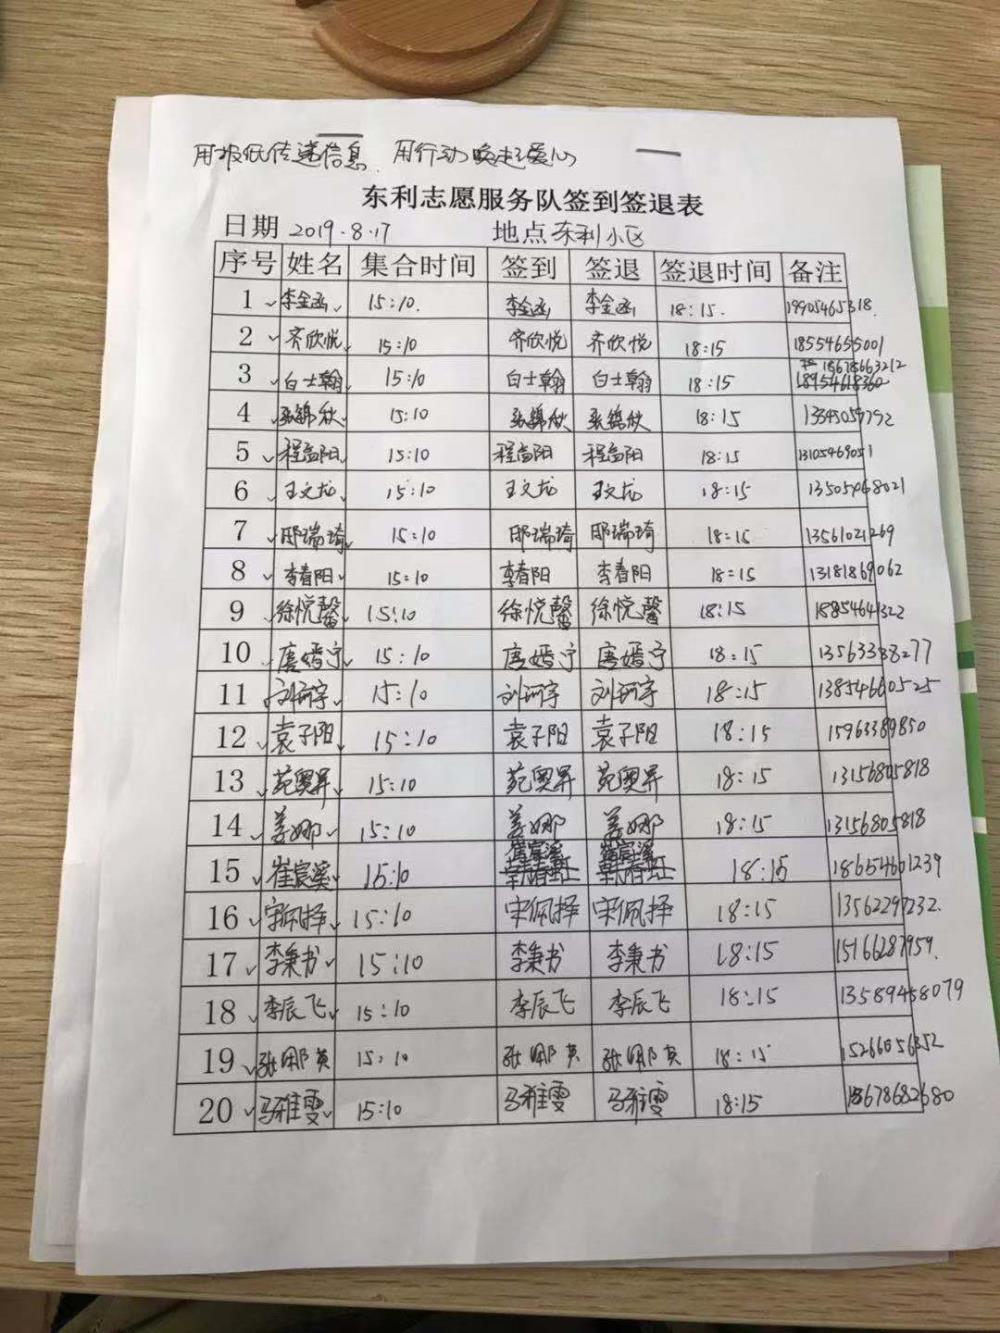 用报纸传递信息 用行动唤起爱心
东利志愿服务队签到签退表
日期 2019.8.17 地点 东利小区
序号 姓名 集合时间 签到 签退 签退时间 备注
1 李金函 15:10. 李金函 李金函 18:15. 19905465318.
2 齐欣悦 15:10 齐欣悦 齐欣悦 18:15 18554655001
3 白士翰 15:10 白士翰 白士翰 18:15 18678663212
4 张锦秋 15:10 张锦秋 张锦秋 18:15
5 程益阳 15:10 程益阳 程益阳 18:15 13105469051
6 王文龙 15:10 王文龙 王文龙 18:15
7 邢瑞琦 15:10 邢瑞琦 邢瑞琦 18:15 13561021269
8 李春阳 15:10 李春阳 李春阳 18:15 13181869062
9 徐悦馨 15:10 徐悦馨 徐悦馨 18:15
10 唐嫣宁 15:10 唐嫣宁 唐嫣宁 18:15 13563388277
11 刘珂宇 15:10 刘珂宇 刘珂宇 18:15 13854660525
12 袁子阳 15:10 袁子阳 袁子阳 18:15 15963389850
13 苑奥昇 15:10 苑奥昇 苑奥昇 18:15 13156805818
14 姜娜 15:10 姜娜 姜娜 18:15 13156805818
15 崔宸溪 15:10 崔宸溪 崔宸溪 18:15 18654601239
16 宋佩择 15:10 宋佩择 宋佩择 18:15 13562297232.
17 李秉书 15:10 李秉书 李秉书 18:15 15166287959.
18 李辰飞 15:10 李辰飞 李辰飞 18:15 13589458079
19 张娜英 15:10 张娜英 张娜英 18:15 15266056352
20 马雅雯 15:10 马雅雯 马雅雯 18:15 15678682680